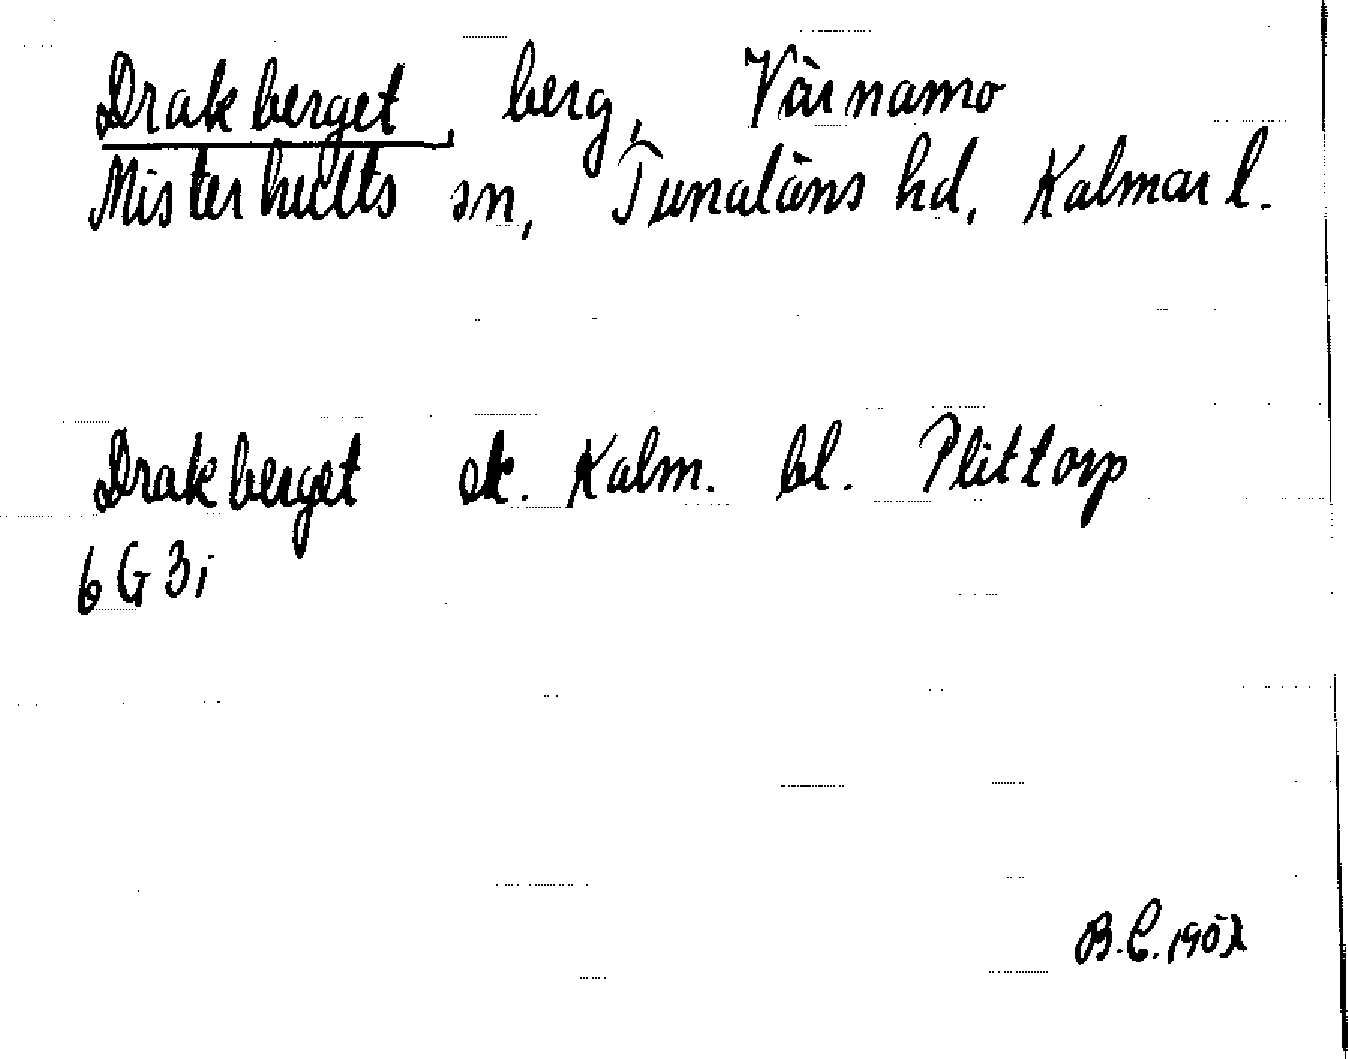 Drakberget, berg, Värnamo
Misterhults sn, Tunaläns hd, Kalmar l.
Drakberget ek. Kalm. bl. Plittorp
6G3i
B.C. 1952